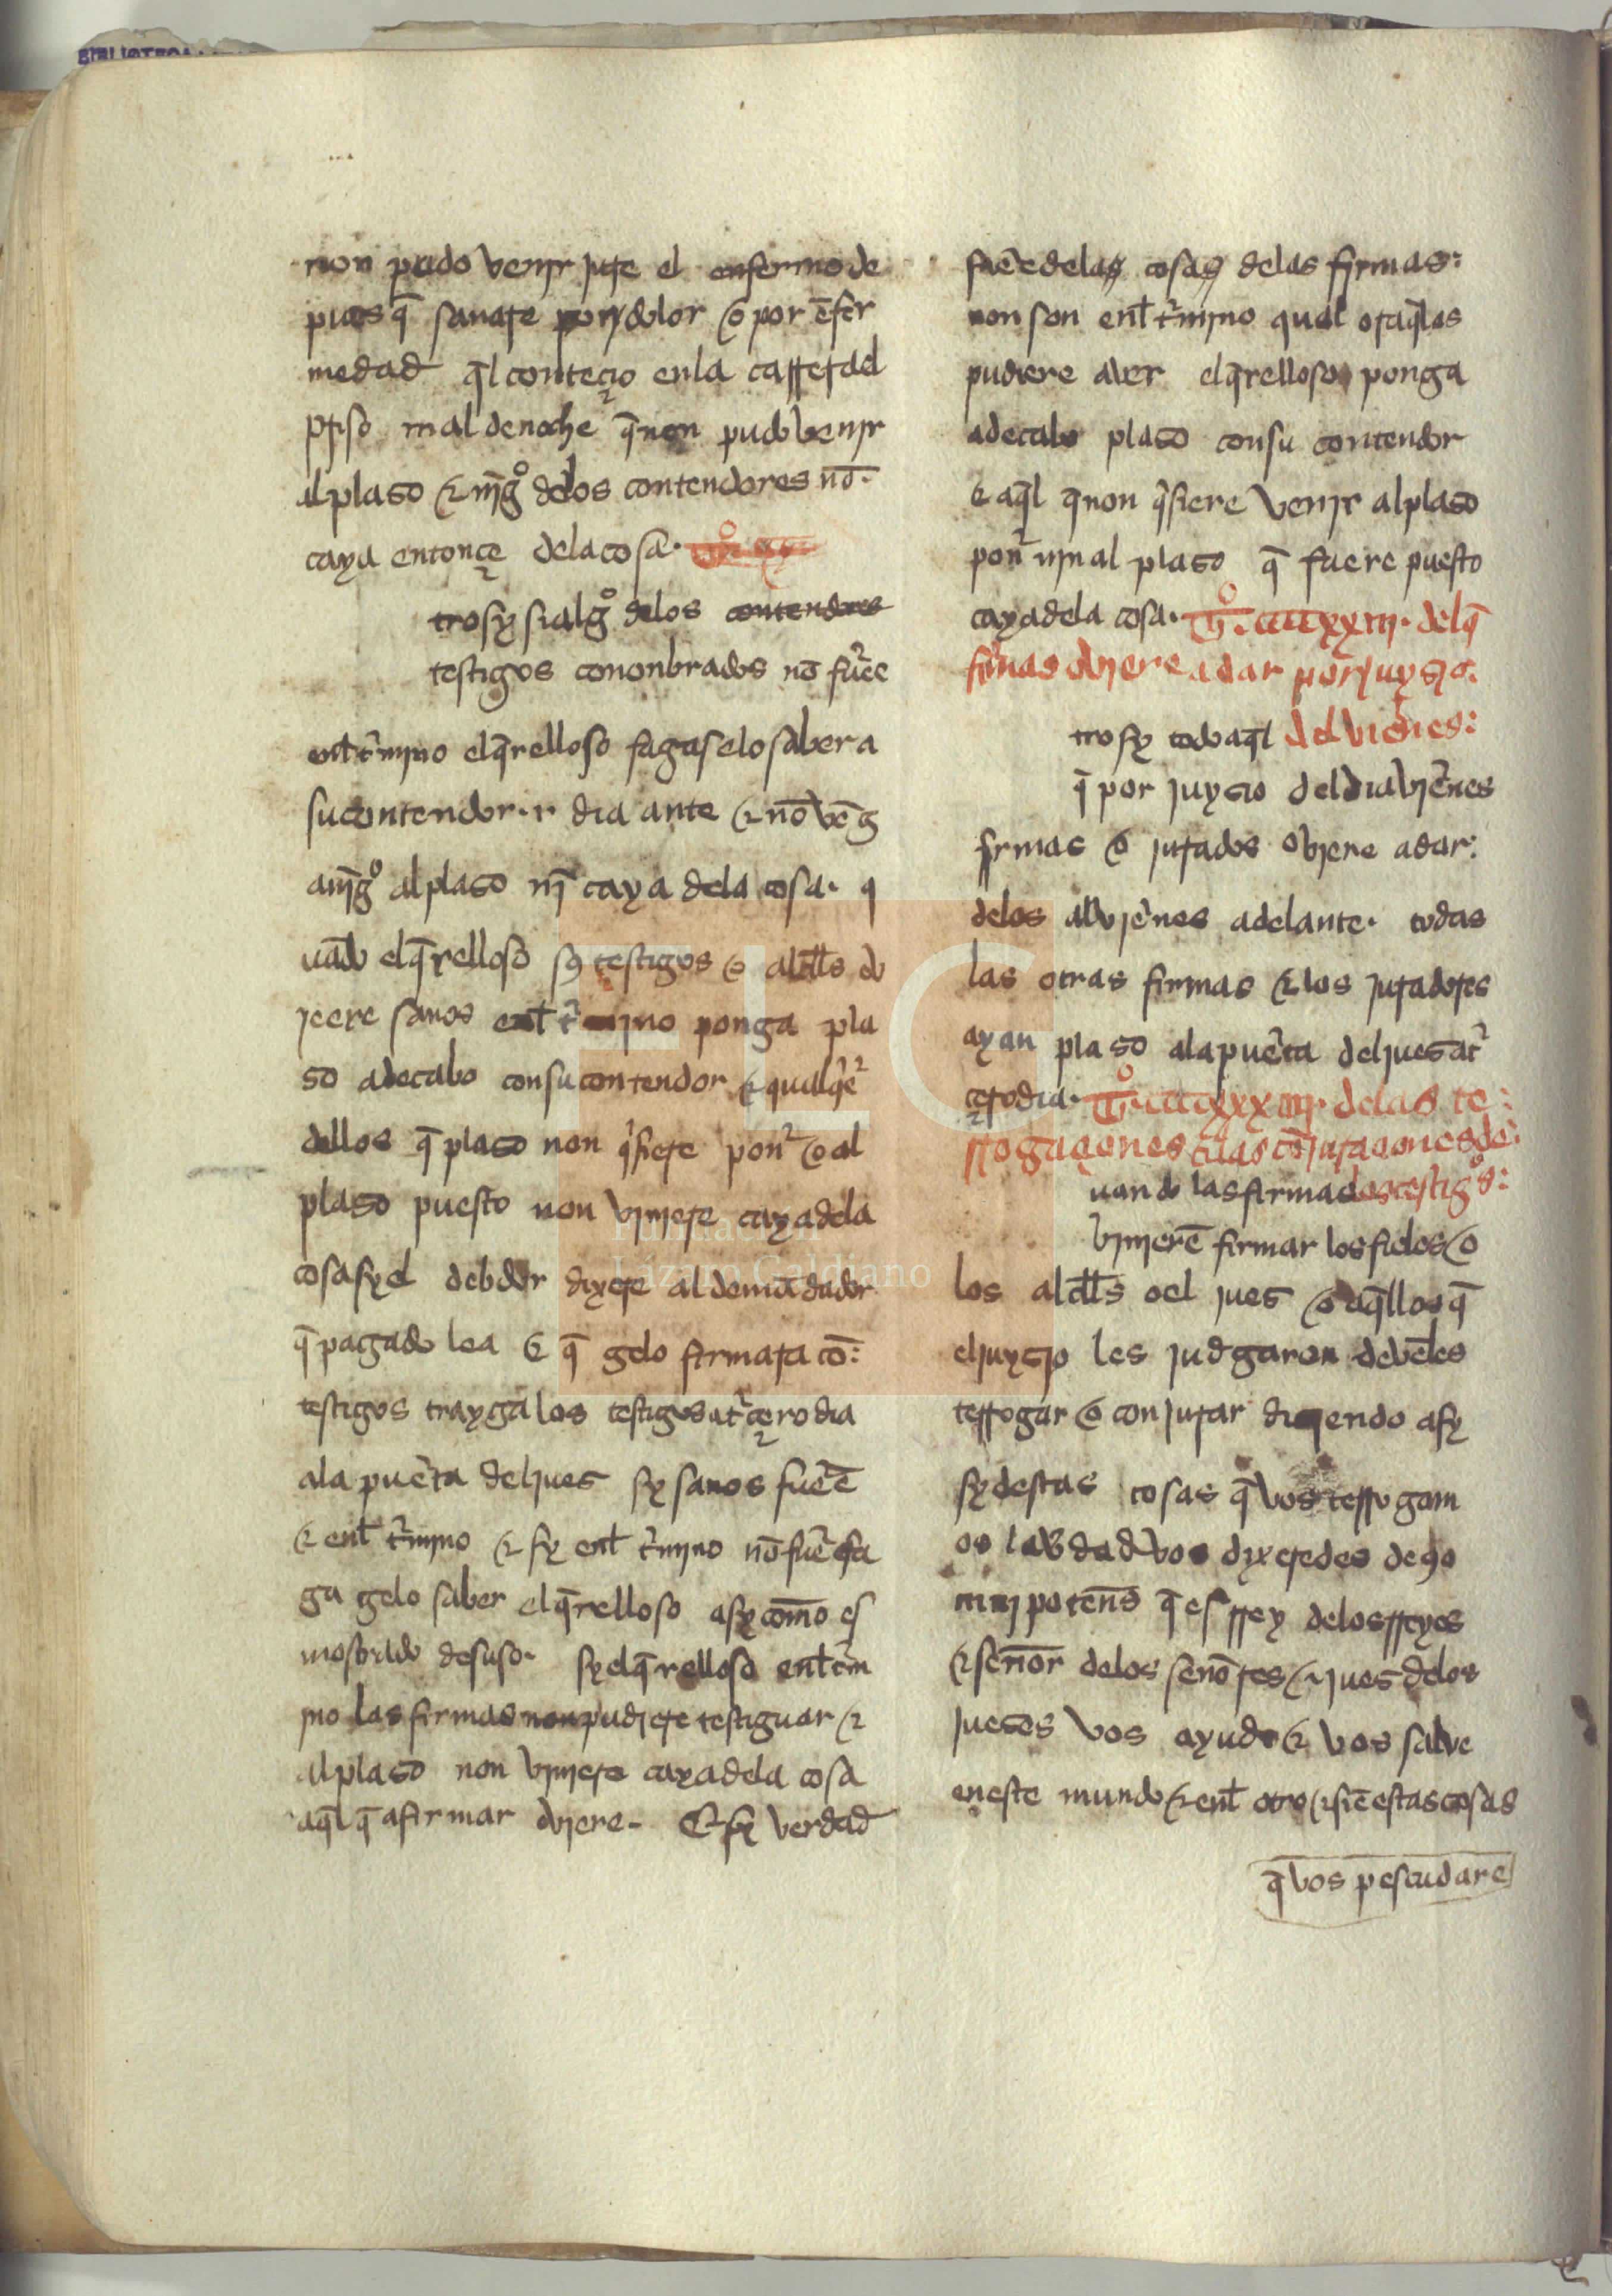 non pudo venjr jure el enfermo de
pues q̄ sanare por dolor o por ēfer
medad q̄l conteçio en la carrera el
priso mal de noche q̄ non pudo venjr
al plaso ⁊ njg̊ delos contendores nō.
caya entonçe dela cosa.
trosy si alg̊ delos contendores
testigos cononbrados nō fuēe
enł t̓mjno el q̄relloso fagaselo saber a
su contendor .r dia ante ⁊ nō vēg
a njg̊ al plaso nj̄ caya dela cosa. q
uādo el q̄relloso sꝯ testigos o alcłłs ov
iere sanos enł t̓mjno ponga pla
so a de cabo con su contendor ⁊ qualq̓e
dellos q̄ plaso non q̓siere pon̓ o al
plaso puesto non vinjere caya dela
cosa sy el debdor dixere al demādador
q̄ pagado lea ⁊ q̄ gelo firmara cō:
testigos trayga los testigos a t̓çero dia
ala puēta del jues sy sanos fuēē
⁊ enł t̓mjno ⁊ sy enł t̓mjno nō fuē fa
ga gelo saber el q̄relloso asy commo es
mostrado desuso. sy el q̄relloso enł t̓m
jno las firmas non pudiere testiguar ⁊
al plaso non vinjere caya dela cosa
aq̄l q̄ a firmar oviere. E sy verdad
fuēe delas cosas delas firmas:
non son enł t̓mjno qual ora q̄ los
pudiere aver el q̄relloso ponga
a de cabo plaso con su contendor
e aq̄l q̄ non q̓siere venjr al plaso
pon̓ njn al plaso q̄ fuere puesto
caya dela cosa. T̊. ccccxxiij. del q̄
firmas oviere a dar por juysio.
trosy todo aq̄l del viēnes:
q̄ por juysio del dia viēnes
firmas o jurados oviere a dar:
delos al viēnes adelante. todas
las otras firmas ⁊ los juradores
ayan plaso ala puēta del jues a t̓
çero dia. T̊. ccccxxxiiij. delas re:
rrogaçiones ⁊ las cōjuraçiones de:
uando las firmas los testig̊s:
vinjerē firmar los fieles o
los alcłłs o el jues o aq̄llos q̄
el juysio les judgaron devēles
rerrogar o conjurar disiendo asy
sy destas cosas q̄ vos rerrogam
os la v̓dad vos dixeredes de yo
mnjpotens q̄ es rrey delos rreyes
⁊ señor delos señores ⁊ jues delos
jueses vos ayude ⁊ vos salve
en este mundo ⁊ enł otro ⁊ si ē estas cosas
q̄ vos pescudare